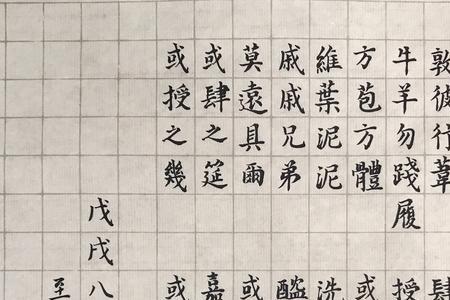 敦彼行葦
牛羊勿踐履
方苞方體
維葉泥泥
戚戚兄弟
莫遠具爾
或肆之筵
或授之幾
肆
授
或
洗
醓
或
嘉
或
戊戌八
至